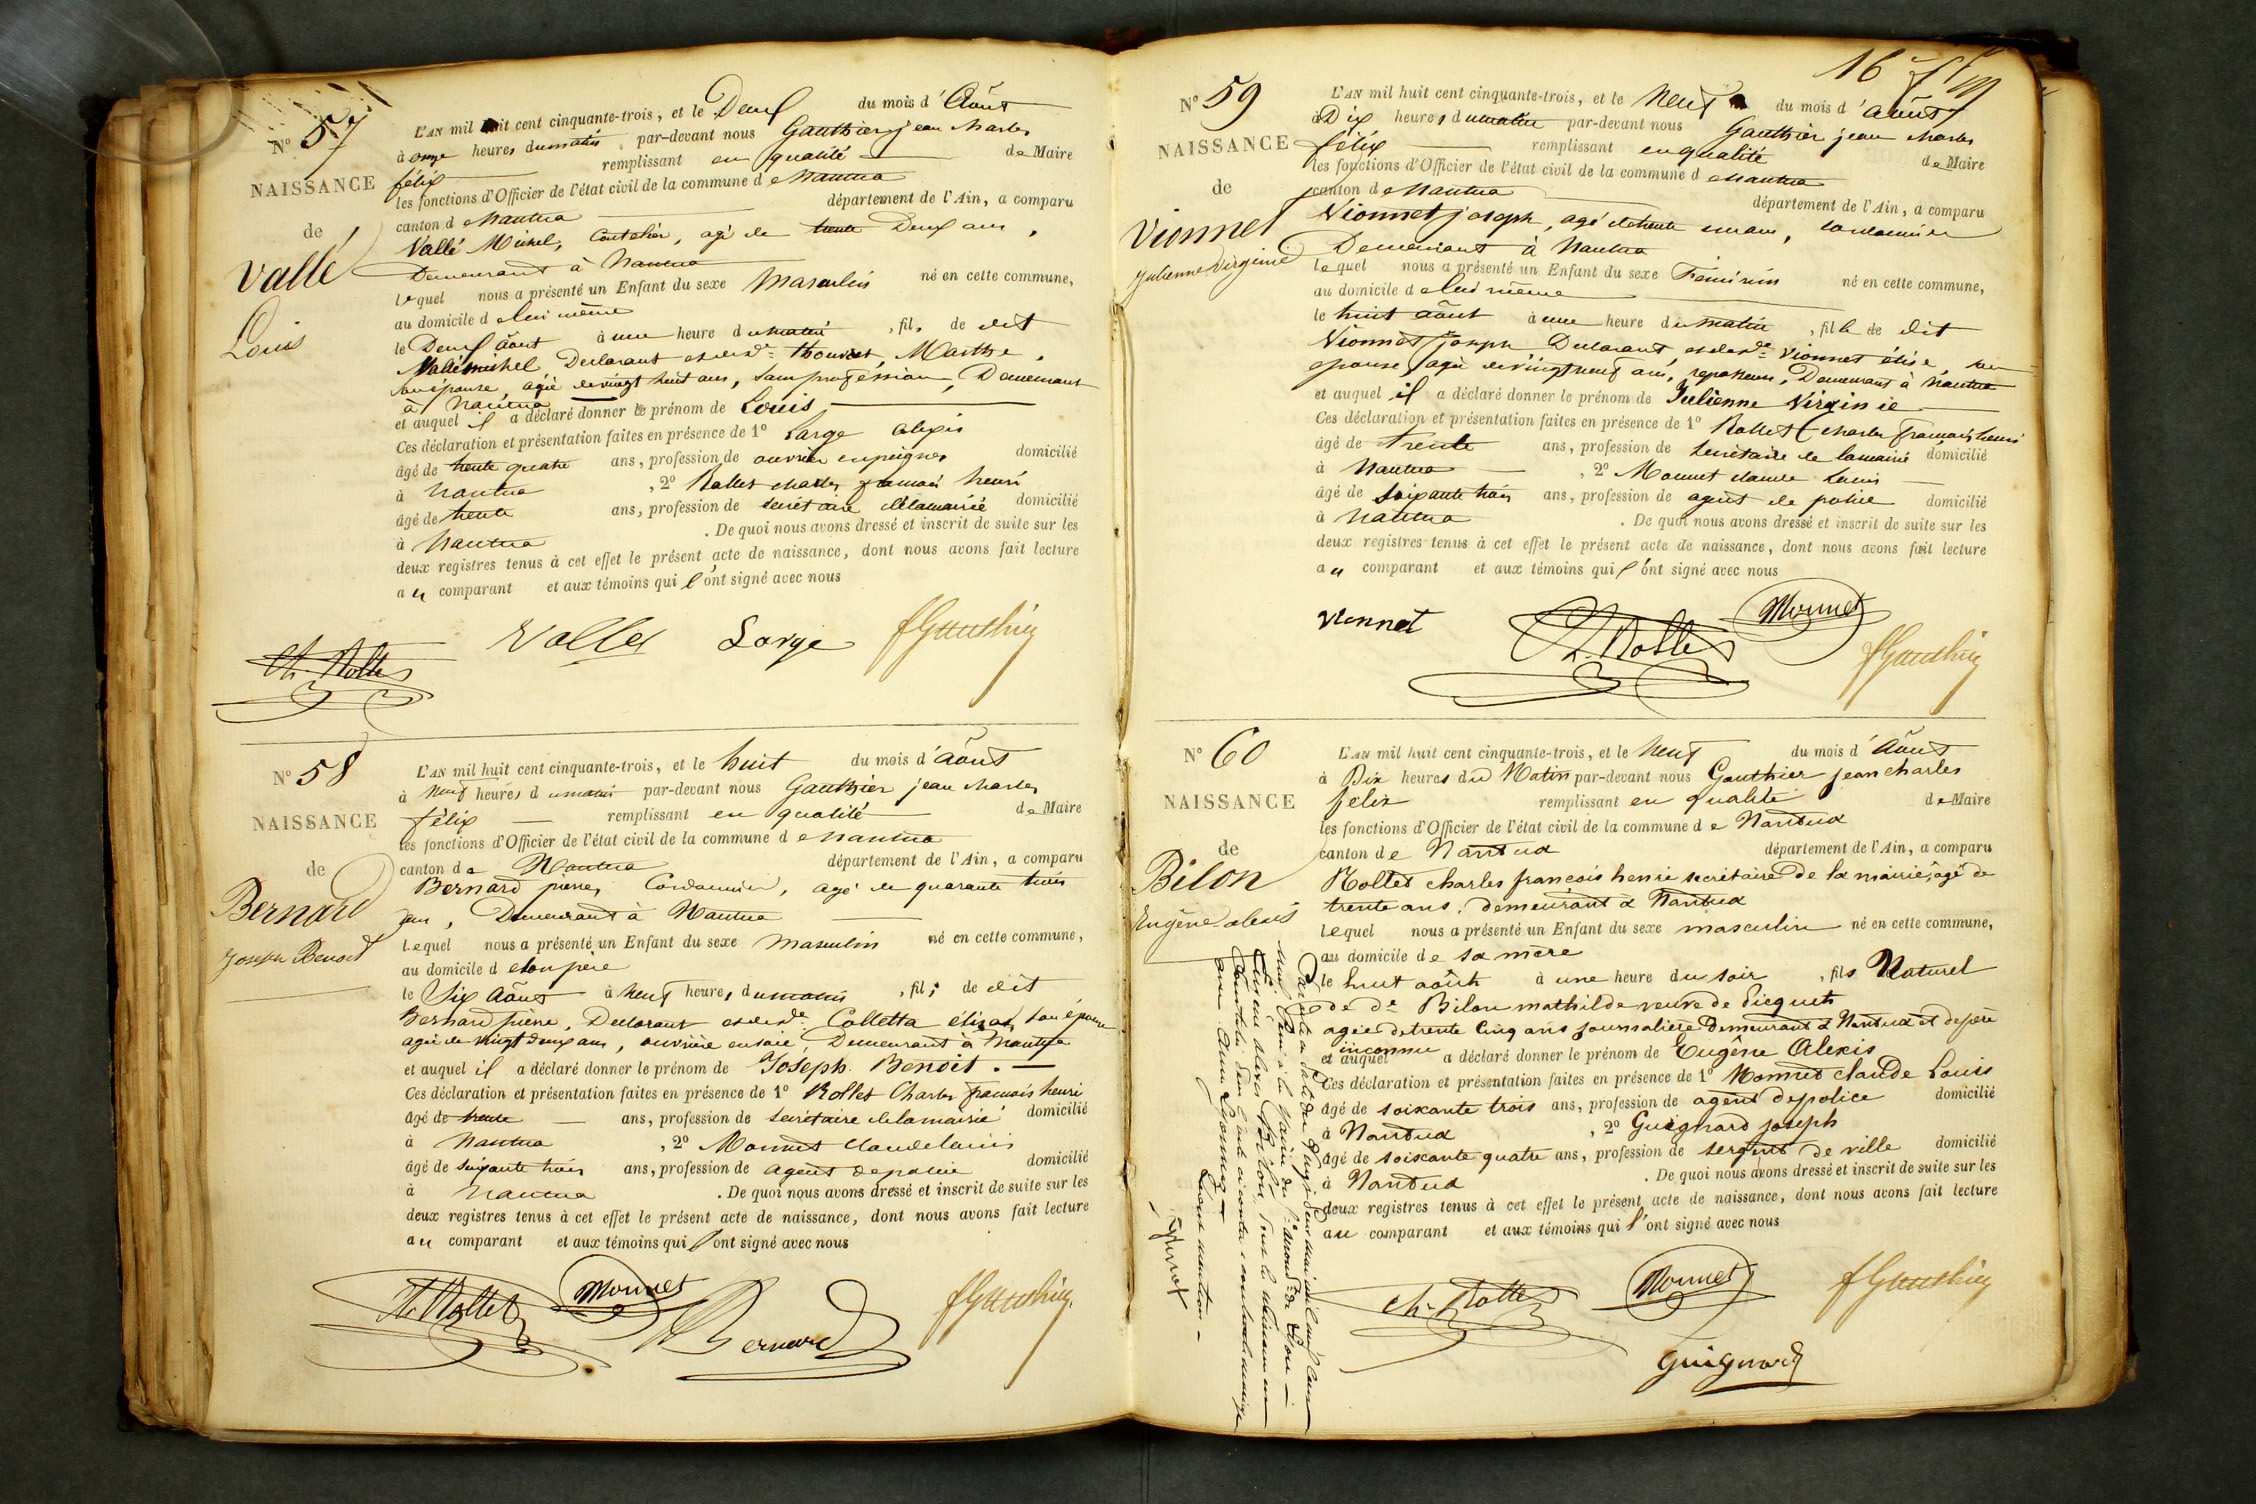 N° 57
NAISSANCE
de
Vallé
Louis
L'AN mil huit cent cinquante-trois, et le Deux du mois d'Août
à onze heures du matin par-devant nous Gauthier jean charles
félix remplissant en qualité de Maire
les fonctions d'Officier de l'état civil de la commune de Nantua
canton de Nantua département de l'Ain, a comparu
Vallé Michel, Coutelier, agé de trente Deux ans,
Demeurant à Nantua
lequel nous a présenté un Enfant du sexe Masculin né en cette commune,
au domicile de lui même
le Deux Août à une heure du matin, fils de dit
Vallé michel Declarant et de de thouret, Marthe,
son épouse, agée de vingt huit ans, sans proféssion, Demeurant
à Nantua
et auquel il a déclaré donner le prénom de Louis
Ces déclaration et présentation faites en présence de 1° Large alexis
âgé de trente quatre ans, profession de ouvrier en peignes domicilié
à Nantua, 2° Rollet charles françois henri
âgé de trente ans, profession de secrétaire de la mairie domicilié
à Nantua. De quoi nous avons dressé et inscrit de suite sur les
deux registres tenus à cet effet le présent acte de naissance, dont nous avons fait lecture
au comparant et aux témoins qui l'ont signé avec nous
Ch. Rollet Vallet Large fGauthier
N° 58
NAISSANCE
de
Bernard
Joseph Benoit
L'AN mil huit cent cinquante-trois, et le huit du mois d'Août
à Neuf heures du matin par-devant nous Gauthier jean charles
félix remplissant en qualité de Maire
les fonctions d'Officier de l'état civil de la commune de Nantua
canton de Nantua département de l'Ain, a comparu
Bernard pierre, Cordonnier, agé de quarante trois
ans, Demeurant à Nantua
lequel nous a présenté un Enfant du sexe masculin né en cette commune,
au domicile de son père
le Six Août à Neuf heures du matin, fils de dit
Bernard pierre, Declarant et de de Colletta élisa, son épouse
agée de vingt deux ans, ouvrière en soie, Demeurant à Nantua
et auquel il a déclaré donner le prénom de Joseph Benoit.
Ces déclaration et présentation faites en présence de 1° Rollet Charles françois henri
âgé de trente ans, profession de secrétaire de la mairie domicilié
à Nantua, 2° Monnet claude louis
âgé de soixante trois ans, profession de agent de police domicilié
à Nantua. De quoi nous avons dressé et inscrit de suite sur les
deux registres tenus à cet effet le présent acte de naissance, dont nous avons fait lecture
au comparant et aux témoins qui l'ont signé avec nous
Ch. Rollet Monnet Bernard fGauthier
16
N° 59
NAISSANCE
de
Vionnet
Julienne Virginie
L'AN mil huit cent cinquante-trois, et le Neuf du mois d'août
à Dix heures du matin par-devant nous Gauthier jean charles
félix remplissant en qualité de Maire
les fonctions d'Officier de l'état civil de la commune de Nantua
canton de Nantua département de l'Ain, a comparu
Vionnet joseph, agé de trente un ans, cordonnier
Demeurant à Nantua
lequel nous a présenté un Enfant du sexe Féminin né en cette commune,
au domicile de lui même
le huit août à une heure du matin, fille de dit
Vionnet joseph Declarant, et de de Vionnet élise, son
epouse agée de vingt neuf ans, repasseuse, Demeurant à Nantua
et auquel il a déclaré donner le prénom de Julienne Virginie
Ces déclaration et présentation faites en présence de 1° Rollet charles françois henri
âgé de trente ans, profession de secrétaire de la mairie domicilié
à Nantua, 2° Monnet claude Louis
âgé de soixante trois ans, profession de agent de police domicilié
à Nantua. De quoi nous avons dressé et inscrit de suite sur les
deux registres tenus à cet effet le présent acte de naissance, dont nous avons fait lecture
au comparant et aux témoins qui l'ont signé avec nous
Vionnet Ch. Rollet Monnet
fGauthier
N° 60
NAISSANCE
de
Bilon
Eugène alexis
L'AN mil huit cent cinquante-trois, et le Neuf du mois d'Août
à Dix heures du Matin par-devant nous Gauthier jean charles
félix remplissant en qualité de Maire
les fonctions d'Officier de l'état civil de la commune de Nantua
canton de Nantua département de l'Ain, a comparu
Rollet charles françois henri secrétaire de la mairie, âgé de
trente ans, demeurant à Nantua
lequel nous a présenté un Enfant du sexe masculin né en cette commune,
au domicile de sa mère
le huit août à une heure du soir, fils Naturel
de de Bilon mathilde veuve de
agée de trente Cinq ans journalière Demeurant à Nantua et de père
inconnu
et auquel a déclaré donner le prénom de Eugène Alexis
Ces déclaration et présentation faites en présence de 1° Monnet claude Louis
âgé de soixante trois ans, profession de agent de police domicilié
à Nantua, 2° Guignard joseph
âgé de soixante quatre ans, profession de sergent de ville domicilié
à Nantua. De quoi nous avons dressé et inscrit de suite sur les
deux registres tenus à cet effet le présent acte de naissance, dont nous avons fait lecture
au comparant et aux témoins qui l'ont signé avec nous
Ch. Rollet Monnet fGauthier
Guignard
à la Mairie du arrondt de Lyon
Eugène alexis Bilon,
ci contre a contracté mariage
avec